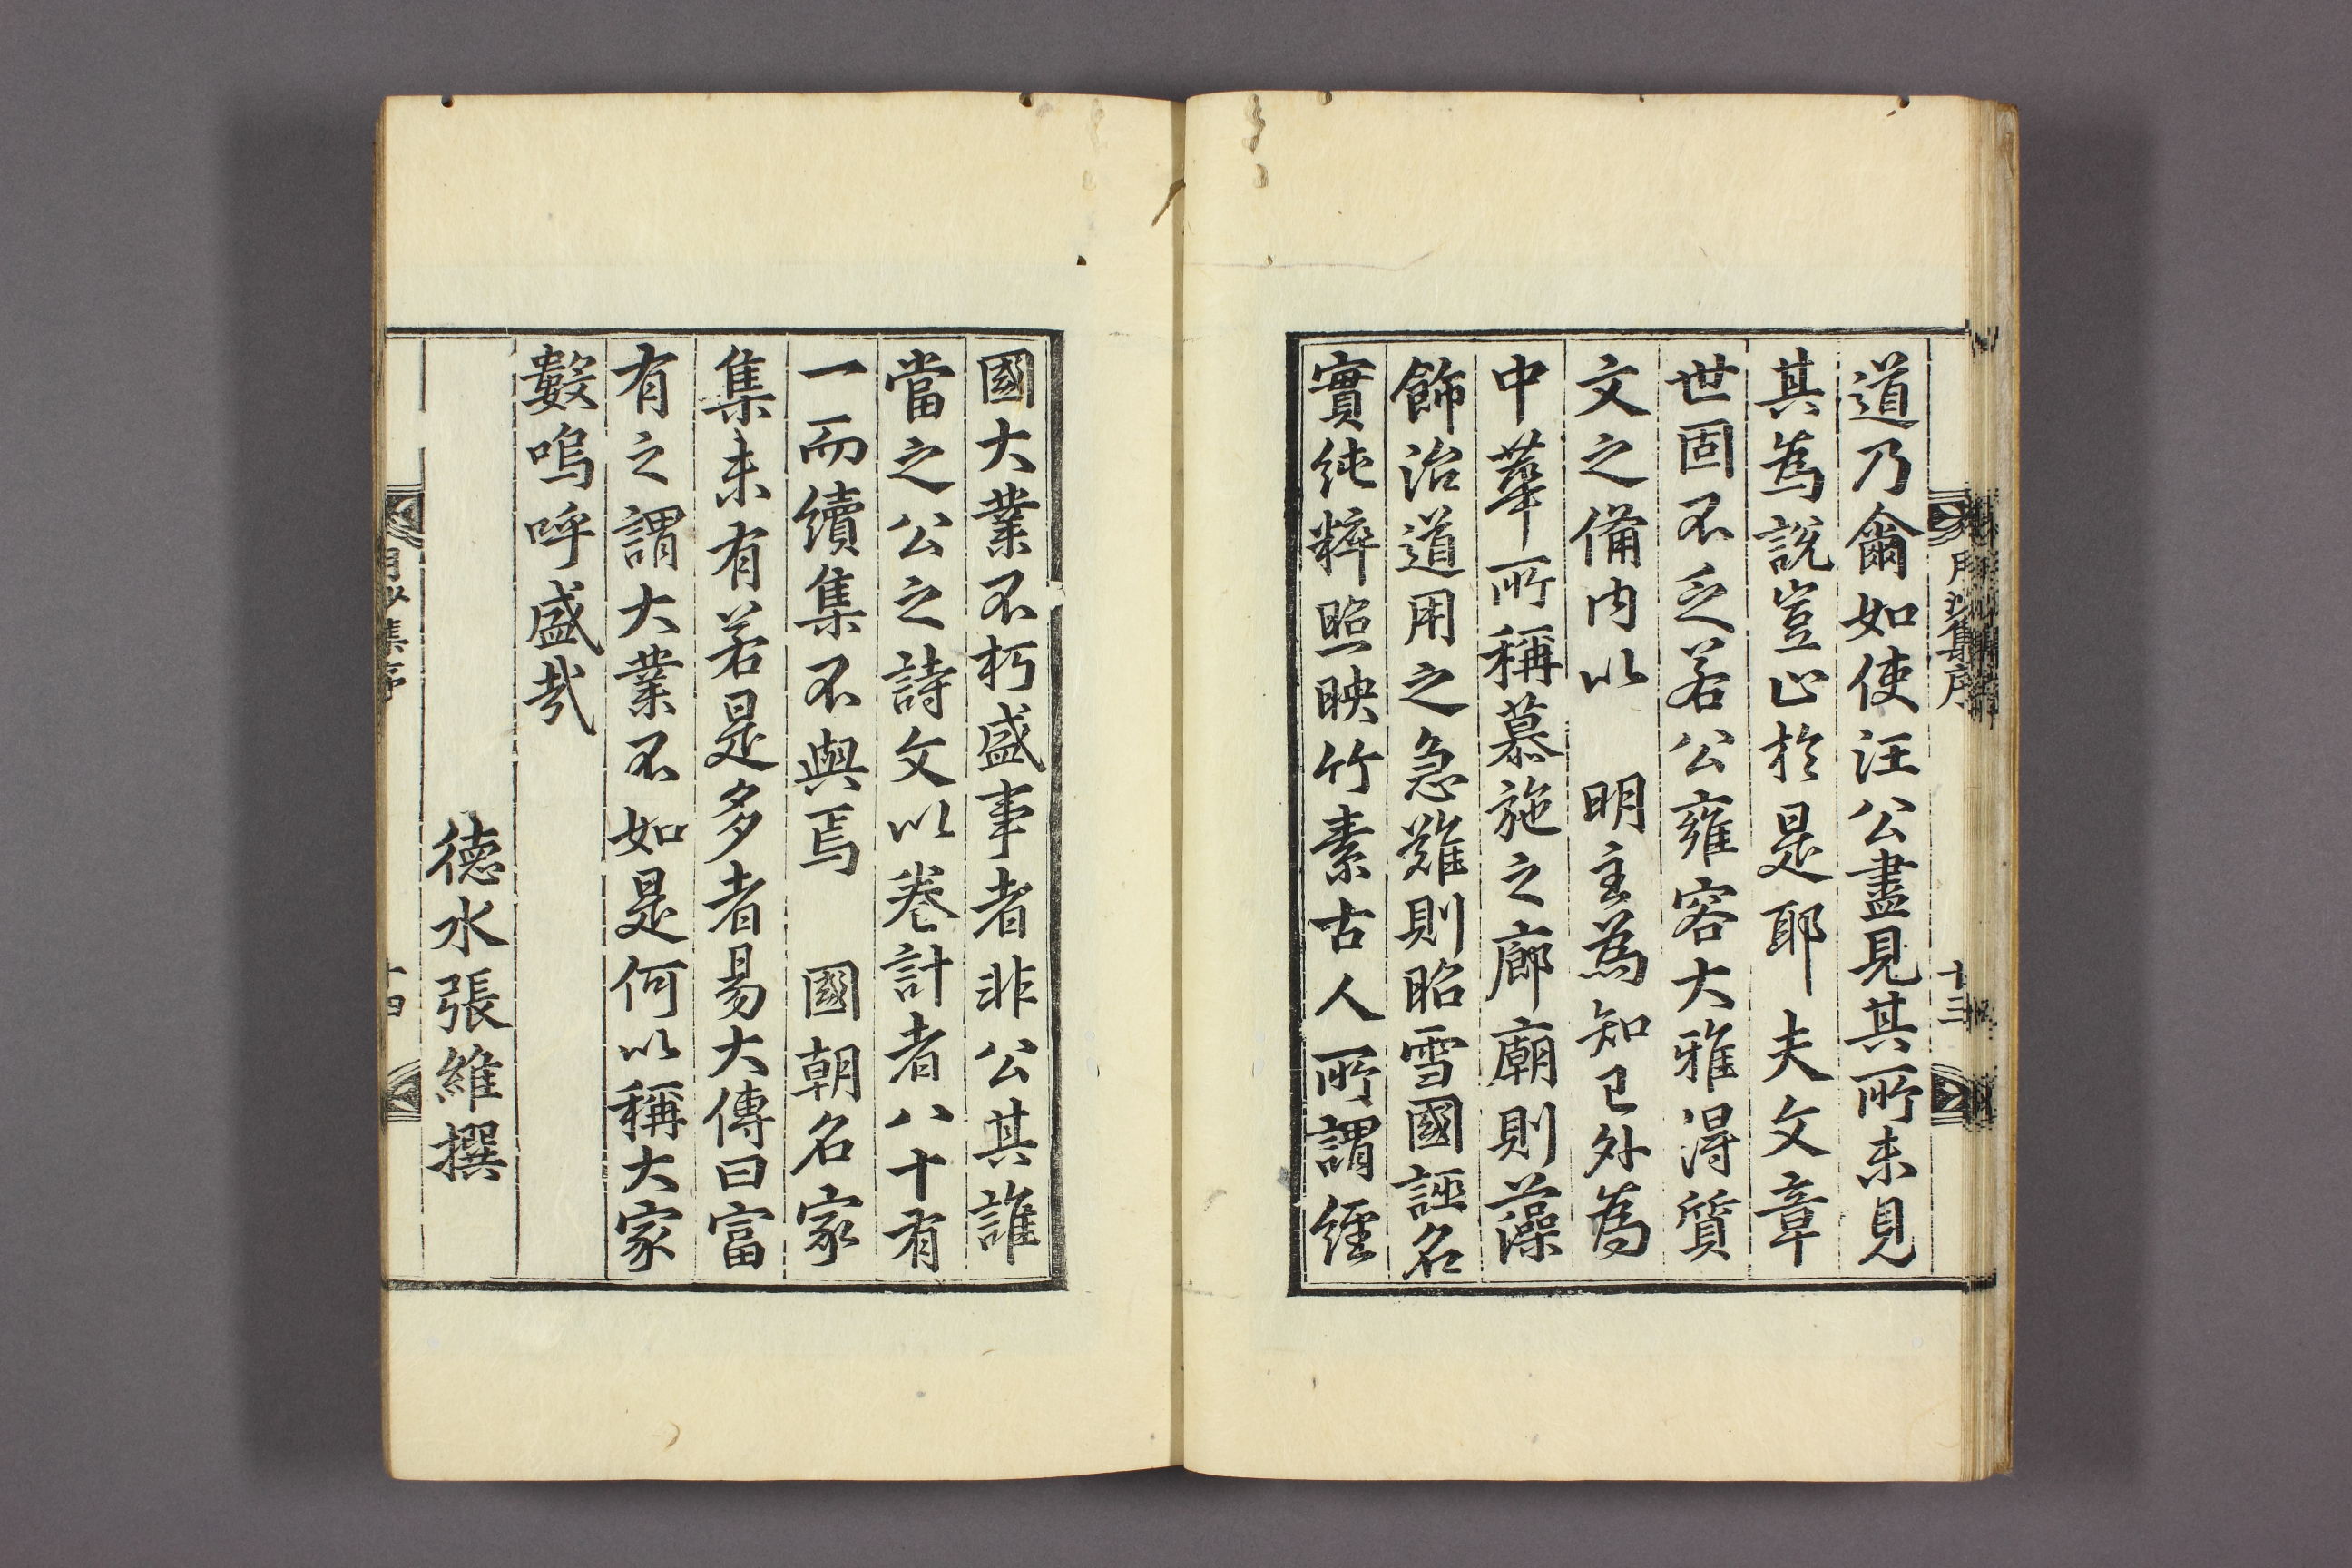 道乃爾如使汪公盡見其所未見
其為說豈止於是耶夫文章
世固不乏若公雍容大雅得質
文之備内以　明主為知已外為
中華所稱慕施之廊廟則藻
飾治道用之急難則昭雪國誣名
實純粹照映竹素古人所謂經
國大業不朽盛事者非公其誰
當之公之詩文以卷計者八十有
一而續集不與焉　國朝名家
集未有若是多者易大傳曰富
有之謂大業不如是何以稱大家
數嗚呼盛哉
德水張維撰
月沙集序
十三
月沙集序
十四